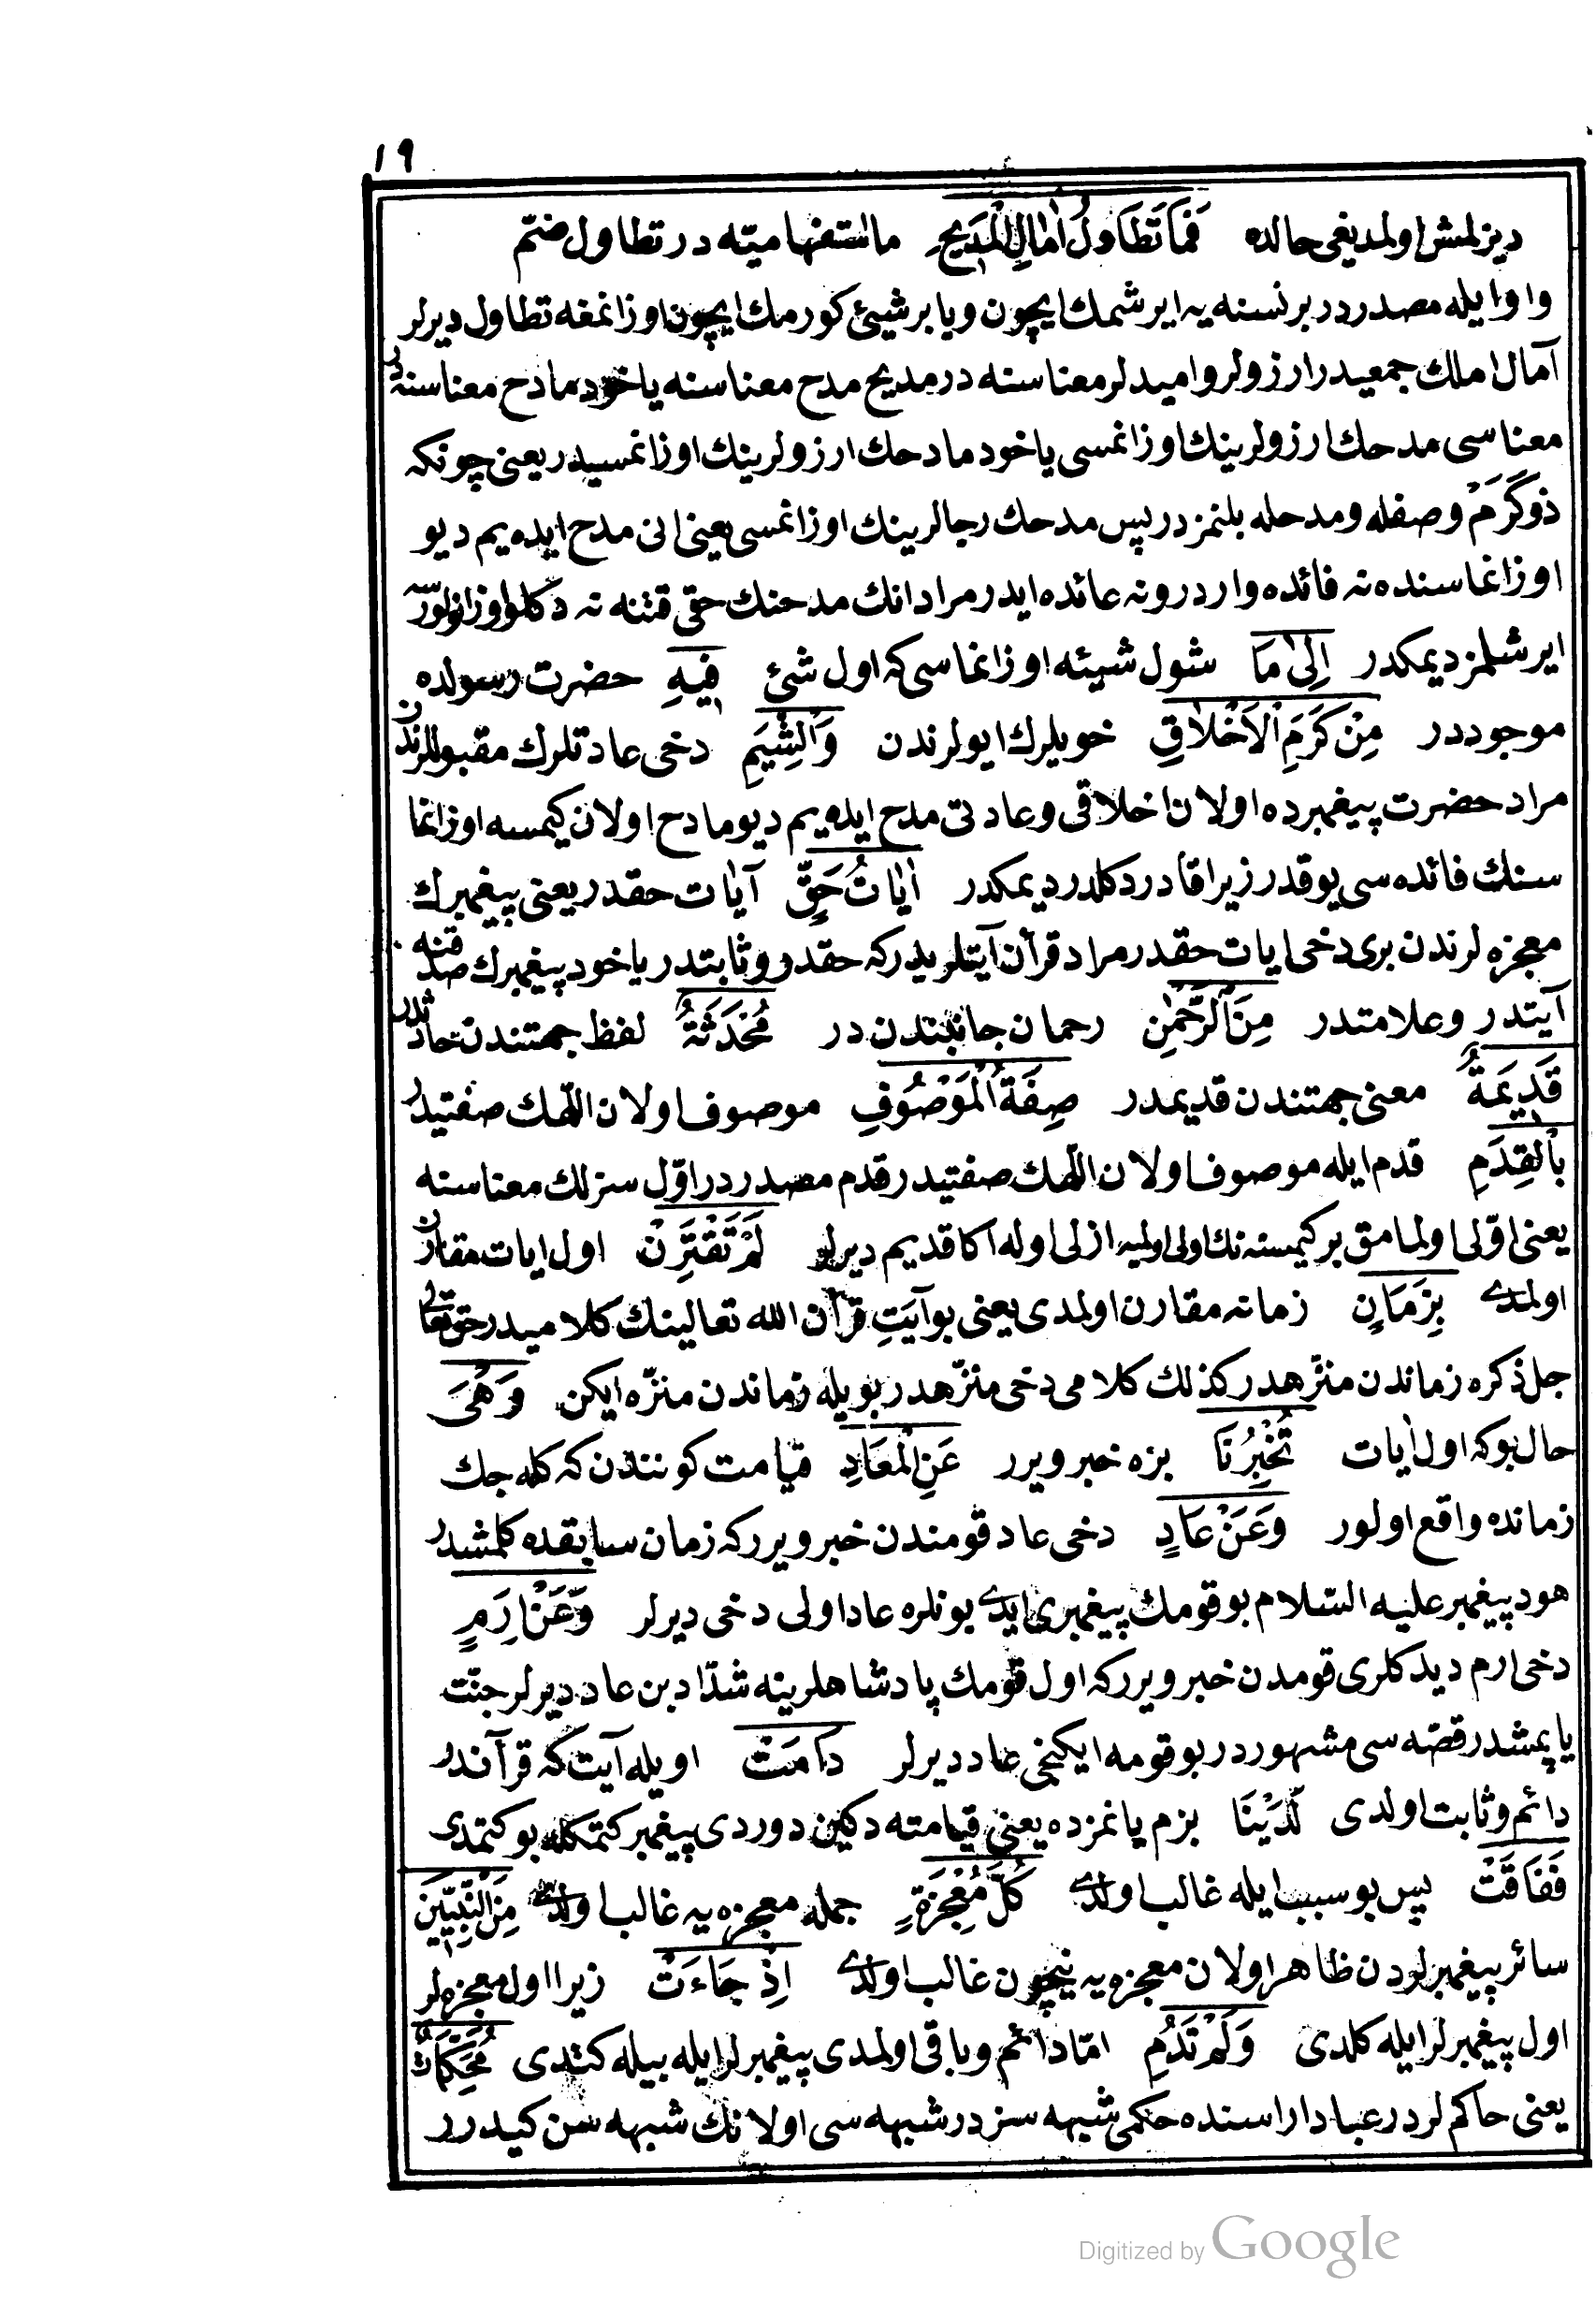 ١٩
ديزلمش اولمديغى حالده فَمَا تَطَاوُلُ اٰمَالِ الْمَدِيحِ ما استفهاميّه در تطاول ضمّ
واو ايله مصدردر برنسنه يه ايرشمك ايچون ويا برشيئ كورمك ايچون اوزانمغه تطاول ديرلر
آمال املك جمعيدر ارزولر و اميدلر معناسنه در مديح مدح معناسنه ياخود مادح معناسنه در
معناسى مدحك ارزولرينك اوزانمسى ياخود مادحك ارزولرينك اوزانمسيدر يعنى چونكه
ذو كَرَمْ وصفله ومدحله بلنمزدر پس مدحك رجالرينك اوزانمسى يعنى انى مدح ايده يم ديو
اوزانماسنده نه فائده واردر ونه عائده ايدر مراد انك مدحنك حقى قتنه نه دكلو اوزانولورسه
ايرشلمز ديمكدر اِلٰى مَا شول شيئه اوزانماسى كه اول شئ فِيهِ حضرت رسولده
موجوددر مِنْ كَرَمِ الْاَخْلَاقِ خويلرك ايولرندن وَالشِّيَمِ دخى عادتلرك مقبوللرندن
مراد حضرت پيغمبرده اولان اخلاقى وعادتى مدح ايده يم ديو مادح اولان كيمسه اوزانما
سنك فائده سى يوقدر زيرا قادر دكلدر ديمكدر اٰيَاتُ حَقٍّ آيات حقدر يعنى پيغمبرك
معجزه لرندن برى دخى ايات حقدر مراد قرآن آيتلريدر كه حقدر وثابتدر ياخود پيغمبرك صدقنه
آيتدر وعلامتدر مِنَ الرَّحْمٰنِ رحمان جانبندن در مُحْدَثَةٌ لفظ جهتندن حادثدر
قَدِيمَةٌ معنى جهتندن قديمدر صِفَةُ الْمَوْصُوفِ موصوف اولان اللّهك صفتيدر
بِالْقِدَمِ قدم ايله موصوف اولان اللّهك صفتيدر قدم مصدردر اوّل سزلك معناسنه
يعنى اوّلى اولمامق بركيمسه نك اولى اولميه ازلى اوله اكا قديم ديرلر لَمْ تَقْتَرِنْ اول ايات مقارن
اولمدى بِزَمَانٍ زمانه مقارن اولمدى يعنى بو آيَتِ قرآن الله تعالينك كلاميدر حق تعالى
جل ذكره زماندن منزّهدر كذلك كلامى دخى منزّهدر بويله زماندن منزّه ايكن وَهْىَ
حال بوكه اول ايات تُخْبِرُنَا بزه خبر ويرر عَنِ الْمَعَادِ قيامت كونندن كه كله جك
زمانده واقع اولور وَعَنْ عَادٍ دخى عاد قومندن خبر ويرر كه زمان سابقده كلمشدر
هود پيغمبر عليه السّلام بو قومك پيغمبرى ايدى بونلره عاد اولى دخى ديرلر وَعَنْ اِرَمٍ
دخى ارم ديدكلرى قومدن خبر ويرر كه اول قومك پادشاهلرينه شدّاد بن عاد ديرلر جنّت
ياپمشدر قصّه سى مشهوردر بو قومه ايكنجى عاد ديرلر دَامَتْ اويله آيت كه قرآندر
دائم وثابت اولدى لَدَيْنَا بزم يانمزده يعنى قيامته دكين دوردى پيغمبر كتمكله بو كتمدى
فَفَاقَتْ پس بو سبب ايله غالب اولدى كُلَّ مُعْجِزَةٍ جمله معجزه يه غالب اولدى مِنَ النَّبِيّٖينَ
سائر پيغمبرلردن ظاهر اولان معجزه يه نيچون غالب اولدى اِذْ جَاءَتْ زيرا اول معجزه لر
اول پيغمبرلر ايله كلدى وَلَمْ تَدُمِ امّا دائم وباقى اولمدى پيغمبرلر ايله بيله كتدى مُحَكَّمَاتٌ
يعنى حاكم لردر عباد اراسنده حكمى شبهه سزدر شبهه سى اولانك شبهه سن كيدرر
Digitized by Google